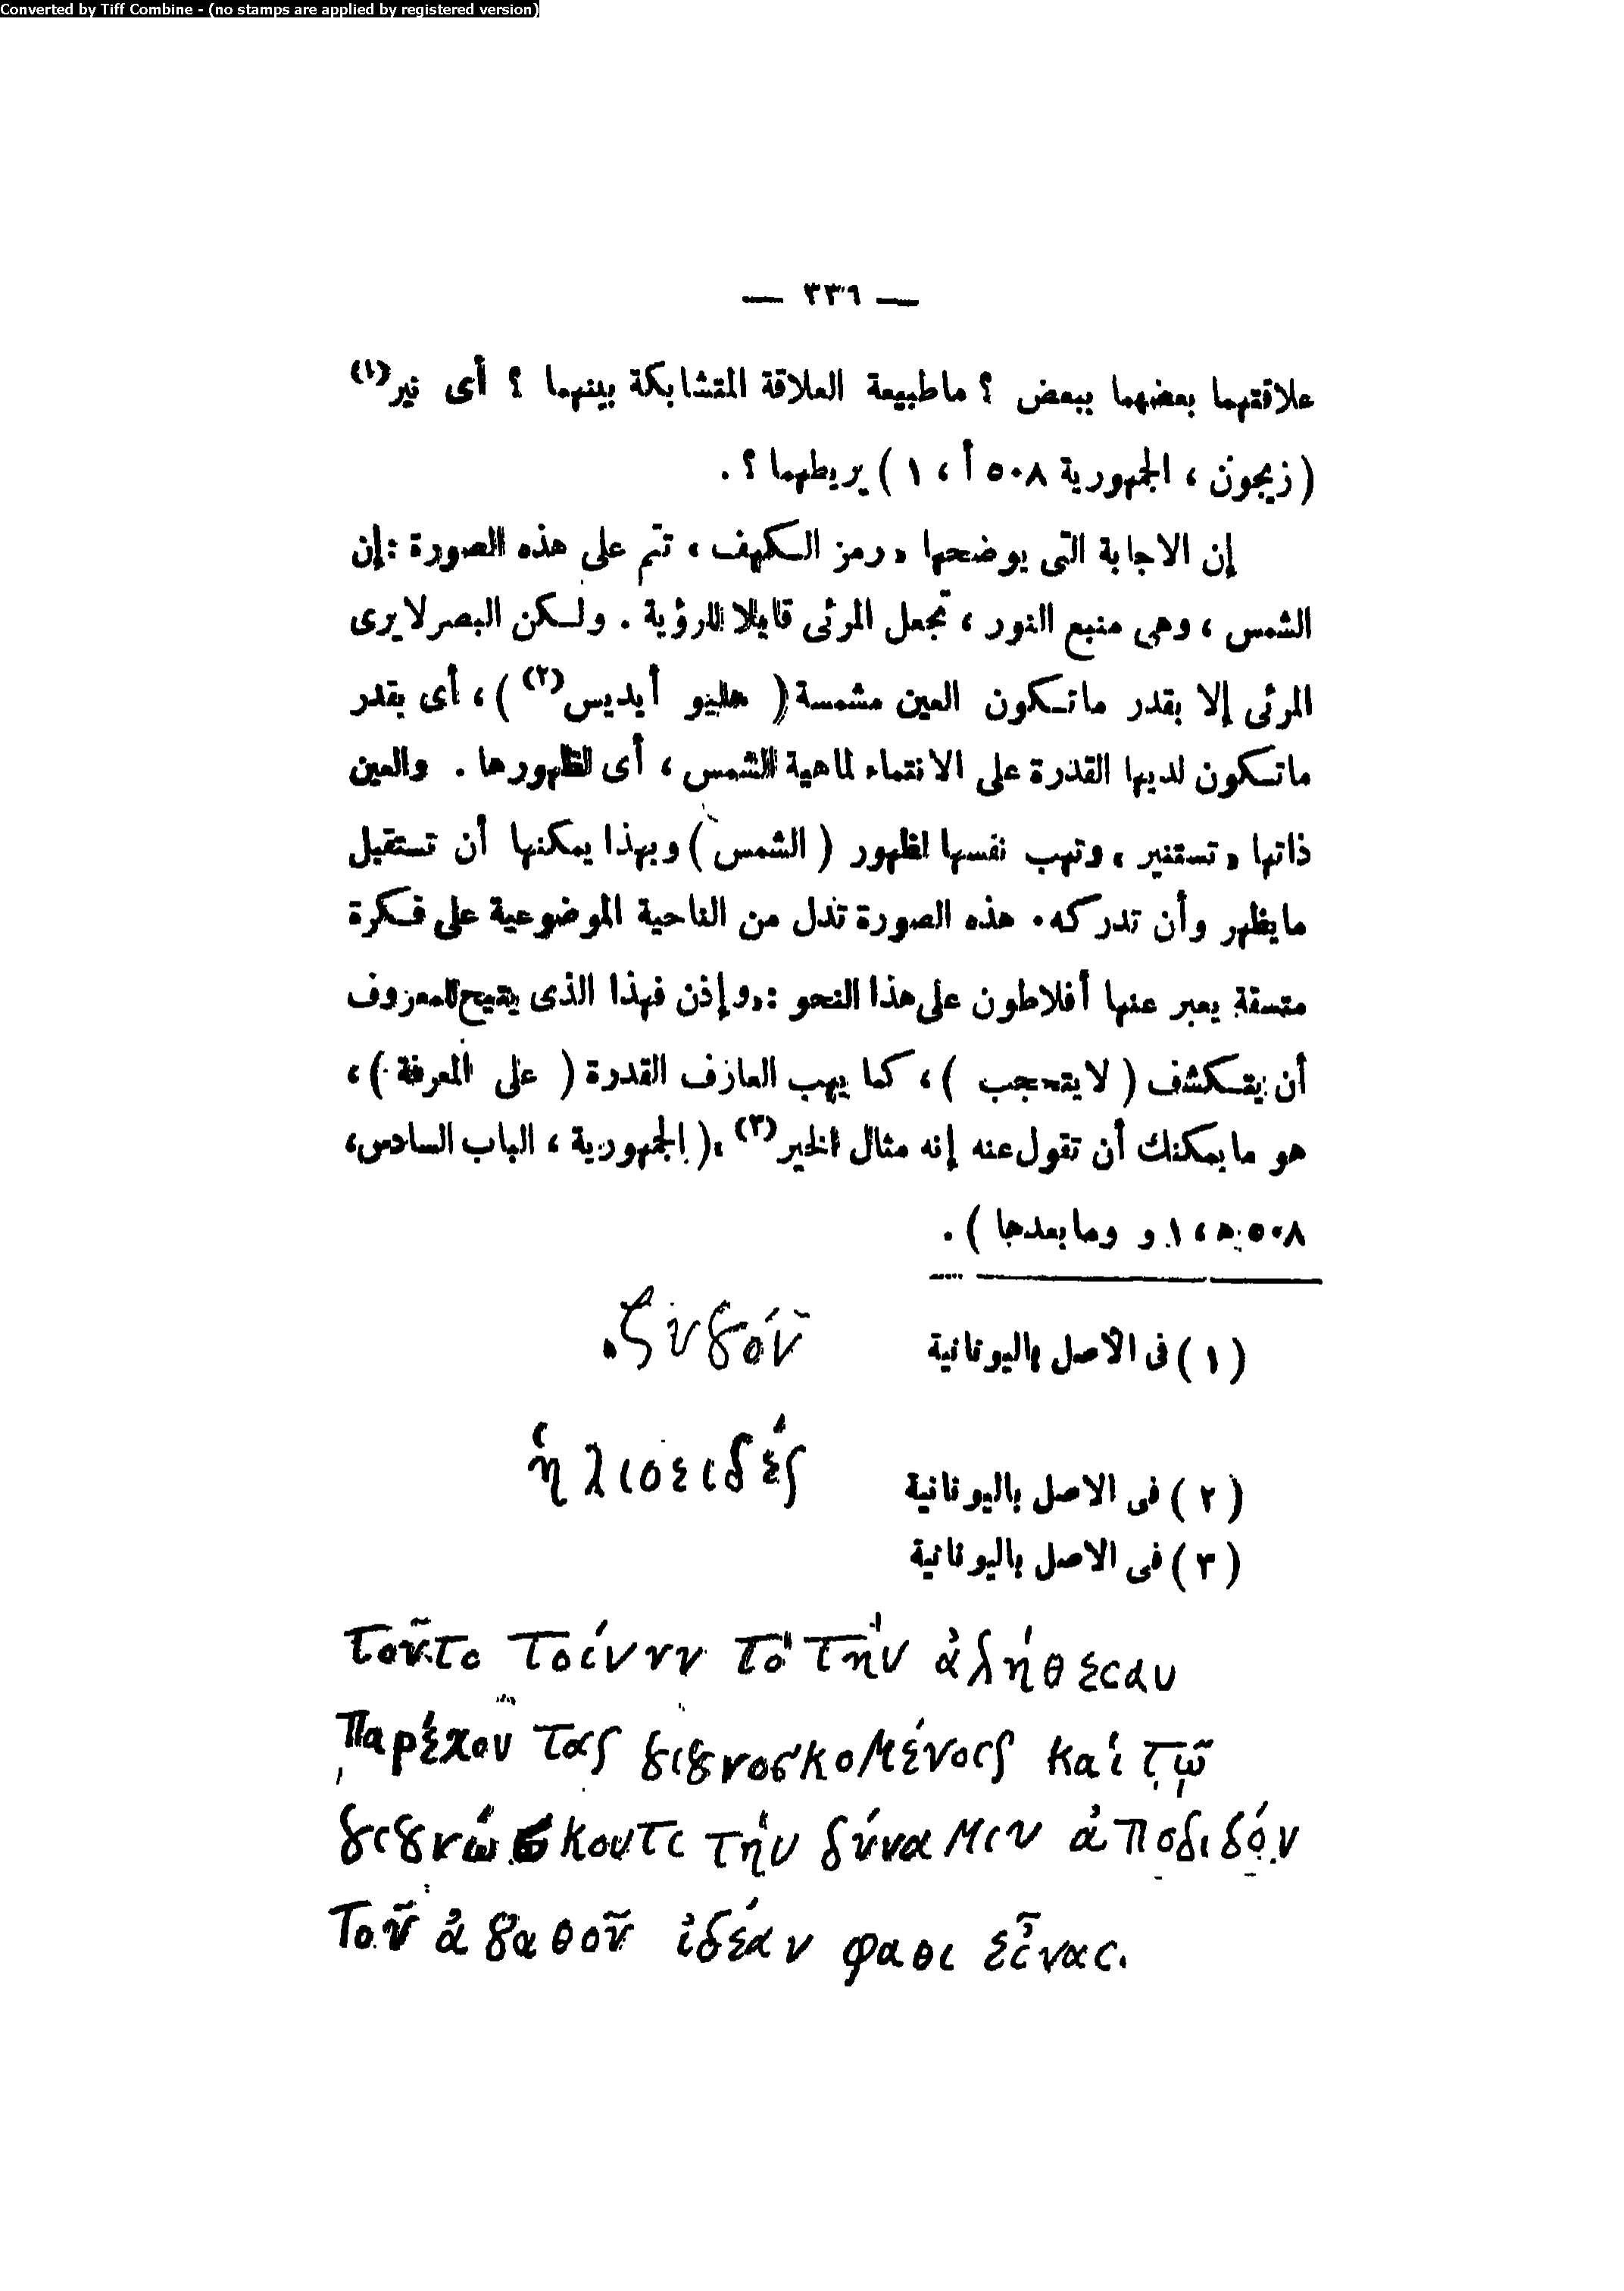 Converted by Tiff Combine - (no stamps are applied by registered version)
— ٣٣٦ —
علاقتهما بعضهما ببعض ؟ ماطبيعة العلاقة المتشابكة بينهما ؟ أى نير(١)
(زيجون ، الجمهورية ٥٠٨ أ ، ١ ) يربطهما ؟ .
إن الاجابة التى يوضحها « رمز الكهف » تتم على هذه الصورة : إن
الشمس ، وهى منبع النور ، تجعل المرئى قابلا للرؤية . ولكن البصر لا يرى
المرئى إلا بقدر ماتكون العين مشمسة ( هليو أيديس(٢) ) ، أى بقدر
ماتكون لديها القدرة على الانتماء لماهية الشمس ، أى لظهورها . والعين
ذاتها « تستنير » وتهب نفسها لظهور ( الشمس ) وبهذا يمكنها أن تستقبل
مايظهر وأن تدركه . هذه الصورة تدل من الناحية الموضوعية على فكرة
متسقة يعبر عنها أفلاطون على هذا النحو : « وإذن فهذا الذى يتيح للمعروف
أن يتكشف ( لايتحجب ) ، كما يهب العارف القدرة ( على المعرفة ) ،
هو مايمكنك أن تقول عنه إنه مثال الخير(٣) » ( الجمهورية ، الباب السادس ،
٥٠٨ هـ ، ١ و ومابعدها ) .
( ١ ) فى الأصل باليونانية ζυγόν.
( ٢ ) فى الاصل باليونانية ἡλιοειδές
( ٣ ) فى الاصل باليونانية
τοῦτο τοίνυν τὸ τὴν ἀλήθειαν
παρέχον τας γιγνοσκομένοις καὶ τῷ
γιγνώσκοντι τὴν δύναμιν ἀποδιδόν
τοῦ ἀγαθοῦ ἰδέαν φαθι εἶναι.